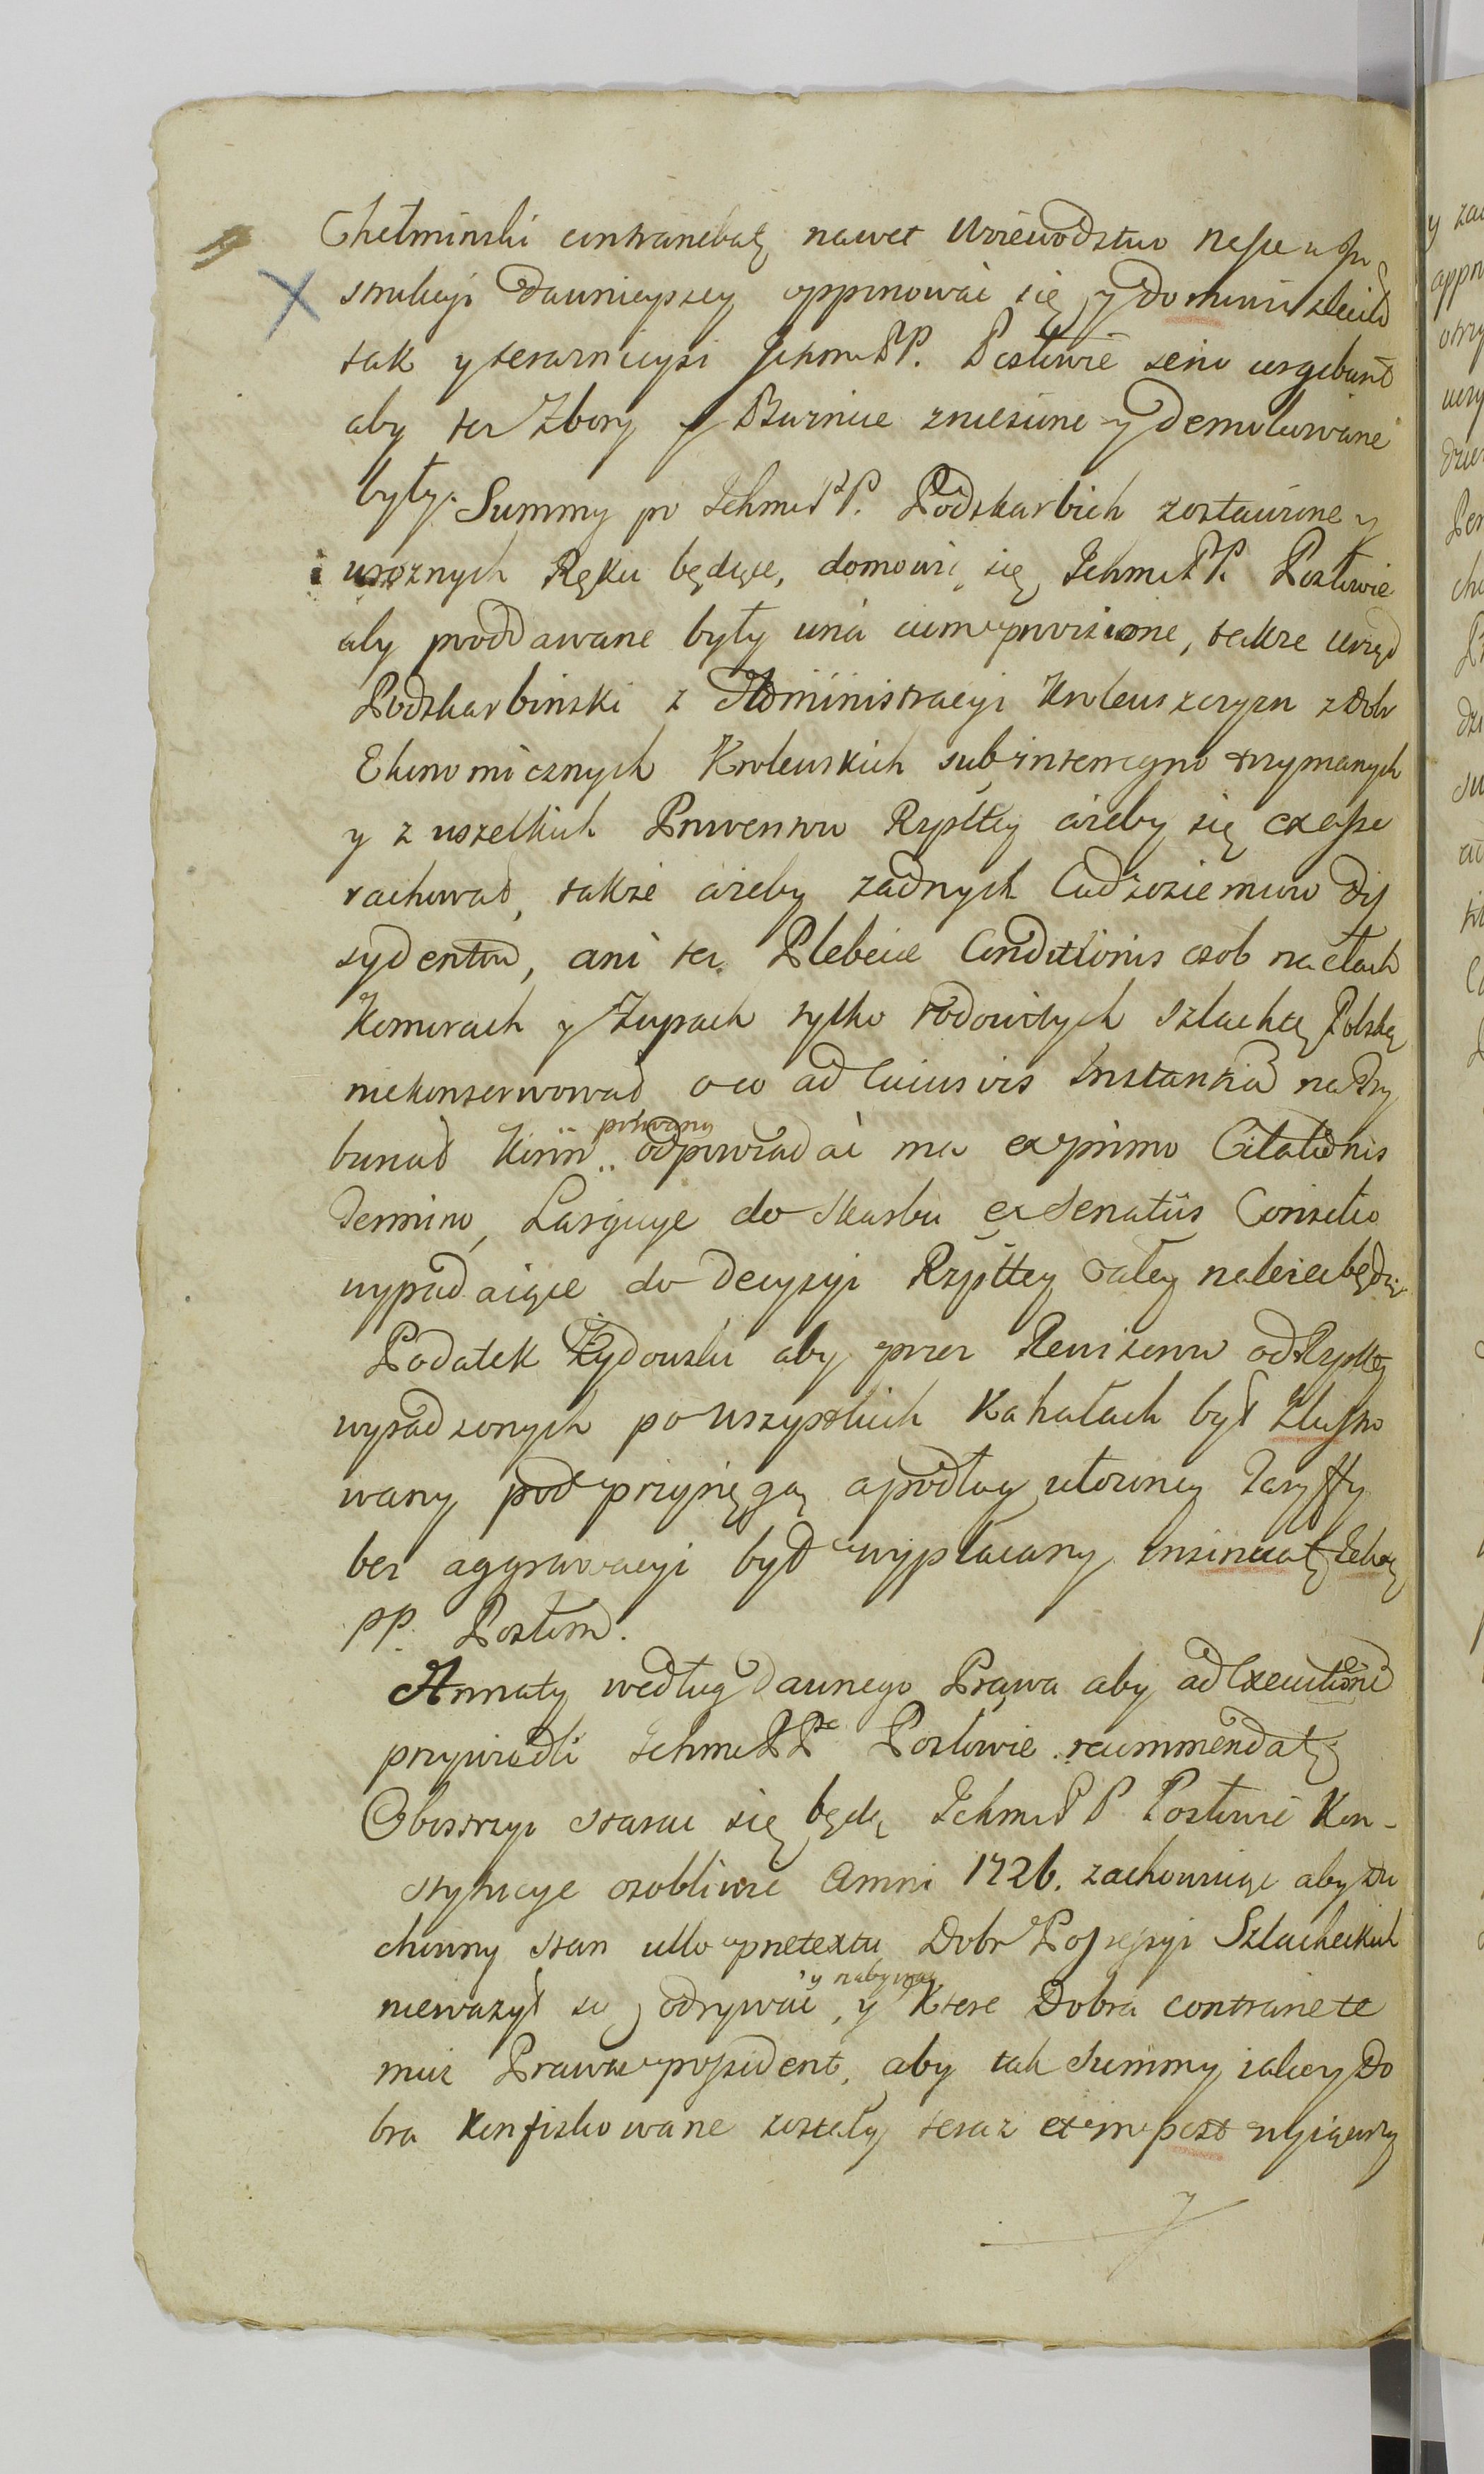 Chełminski contranebat, nawet Woiewodztwo nasze w In
strukcyi dawnieyszey opponować się y do zleciło
tak y teraznieysi Ichmc PP. Posłowie serio urgebunt
aby te Zbory y Boznice zniesione y demoliowane
były. Summy po Ichmc PP. Podskarbich zostawione y
w roznych Ręku będące, domowią się Ichmc PP. Posłowie
aby proddawane były una cum provisione, także urząd
Podskarbinski z Administracyi Krolewszczyzn z Dobr
Ekonomicznych Krolewskich sub interregno trzymanych
y z wszelkich Prowentow Rzpltey ażeby się ex asse
rachował, także ażeby żadnych Cudzoziemcow dys
sydentow, ani też Plebeiae Conditionis osob na cłach
Komorach y Żupach tylko rodowitych szlachtę Polską
niekonserwował o co ad cuiusvis Instantia na Try
bunał Koron: pozwany odpowiadać ma ex primo Citationis
Termino, Largicye do Skarbu ex Senatus Consilio
wypadaiące do decyzyi Rzpltey całey należeć będzie
Podatek Żydowski aby przez Rewizorow od Rzpltey
wysadzonych po wszystkich Kahałach był
wany pod przysięgą a podług ułożoney Taryffy
bez aggrawacyi był wypłacany insinuat Ichmc
PP. Posłom.
Annaty według dawnego Prawa aby ad Executione
przywiedli Ichmc PP. Posłowie recommendat,
Obostrzyc starać się będą Ichmc PP Posłowie Kon-
stytucye osobliwie Anni 1726. zachowuiąc aby Du
chowny stan ullo praetextu Dobr Possessyi Szlacheckich
nieważył się odrywać, y nabywać y ktore Dobra contra
Prawu possident, aby tak Summy iako y Do
bra konfiskowane zostały teraz et in post wyiąwszy
y